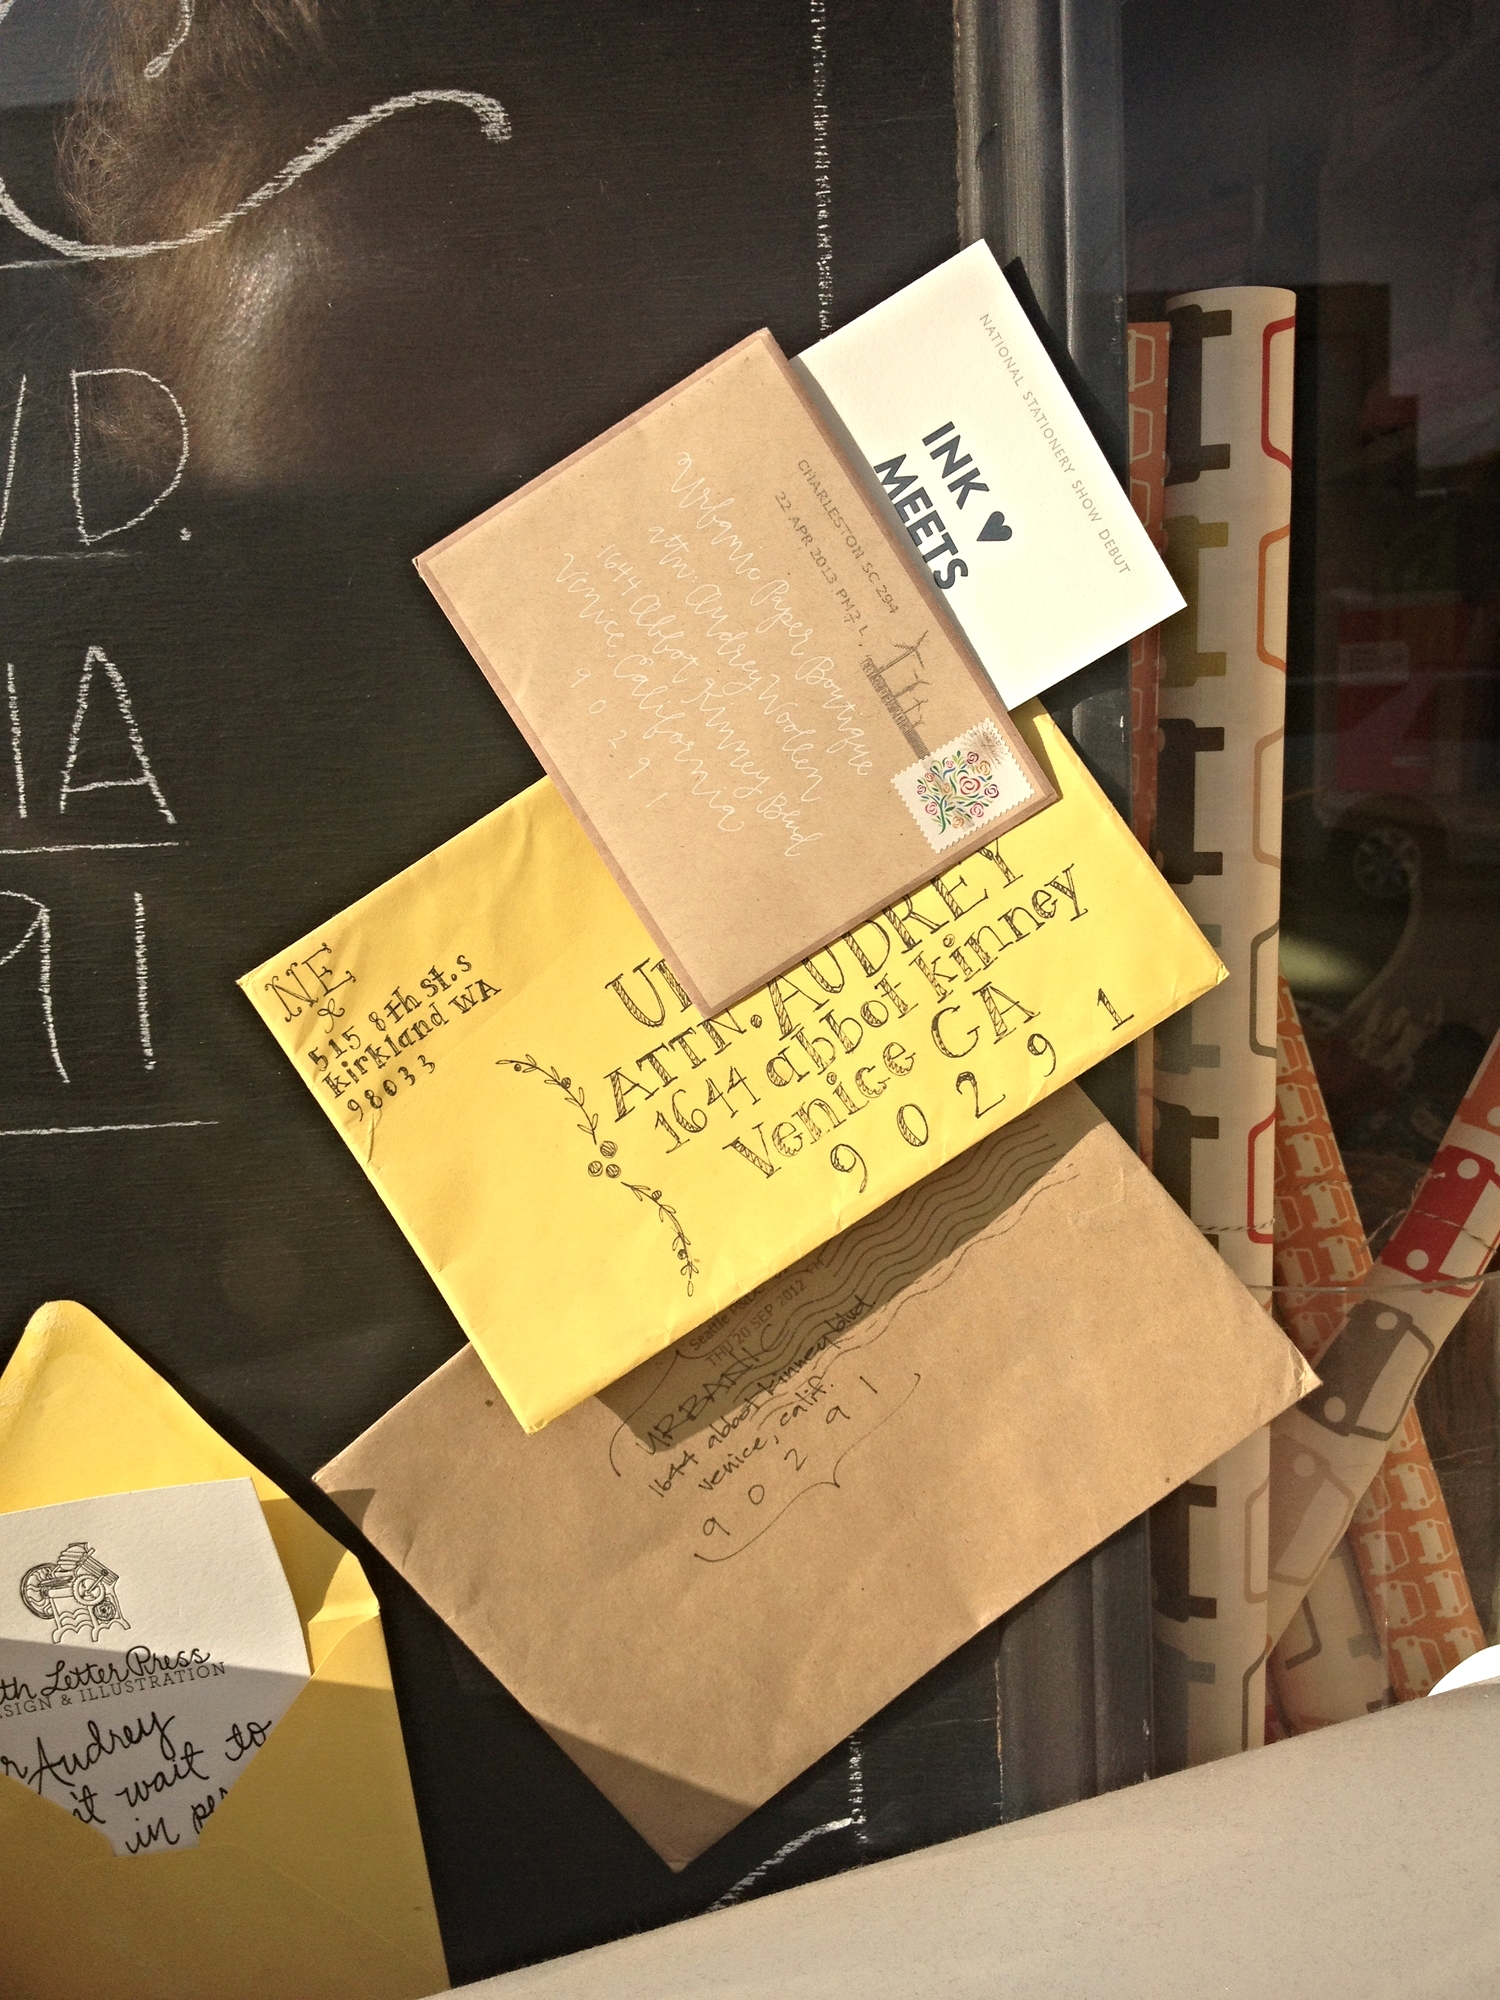 VD.
IA
91
NATIONAL STATIONERY SHOW DEBUT
INK ♥
MEETS
CHARLESTON SC 294
22 APR 2013 PM 2 L
Urbanic Paper Boutique
attn: Audrey Woollen
1644 Abbot Kinney Blvd
Venice, California
9 0 2 9 1
NE
515 8th St. S
Kirkland WA
98033
UR
ATTN. AUDREY
1644 abbot kinney
Venice CA
9 0 2 9 1
Seattle P&DC
THU 20 SEP 2012 PM
URBANIC
1644 abbot kinney blvd
venice, calif.
9 0 2 9 1
th Letter Press
ESIGN & ILLUSTRATION
r Audrey
't wait to
in per